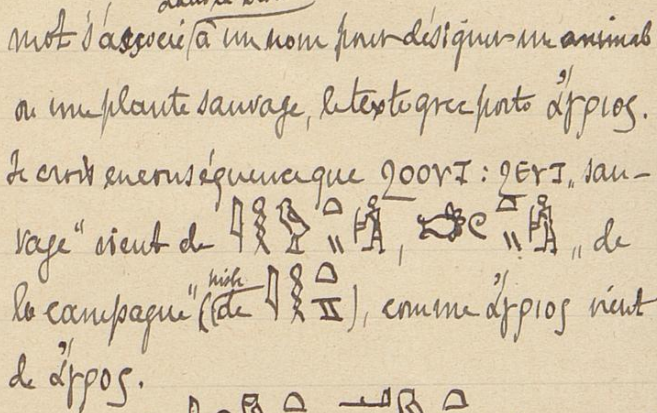 mot s'associe à un nom pour désigner un animal
ou une plante sauvage, le texte grec porte ἄγριος.
Je crois en conséquence que ϩⲟⲟⲩⲧ : ϩⲉⲩⲧ „sau-
vage“ vient de , „de
la campagne“ (de ), comme ἄγριος vient
de ἄγρος.